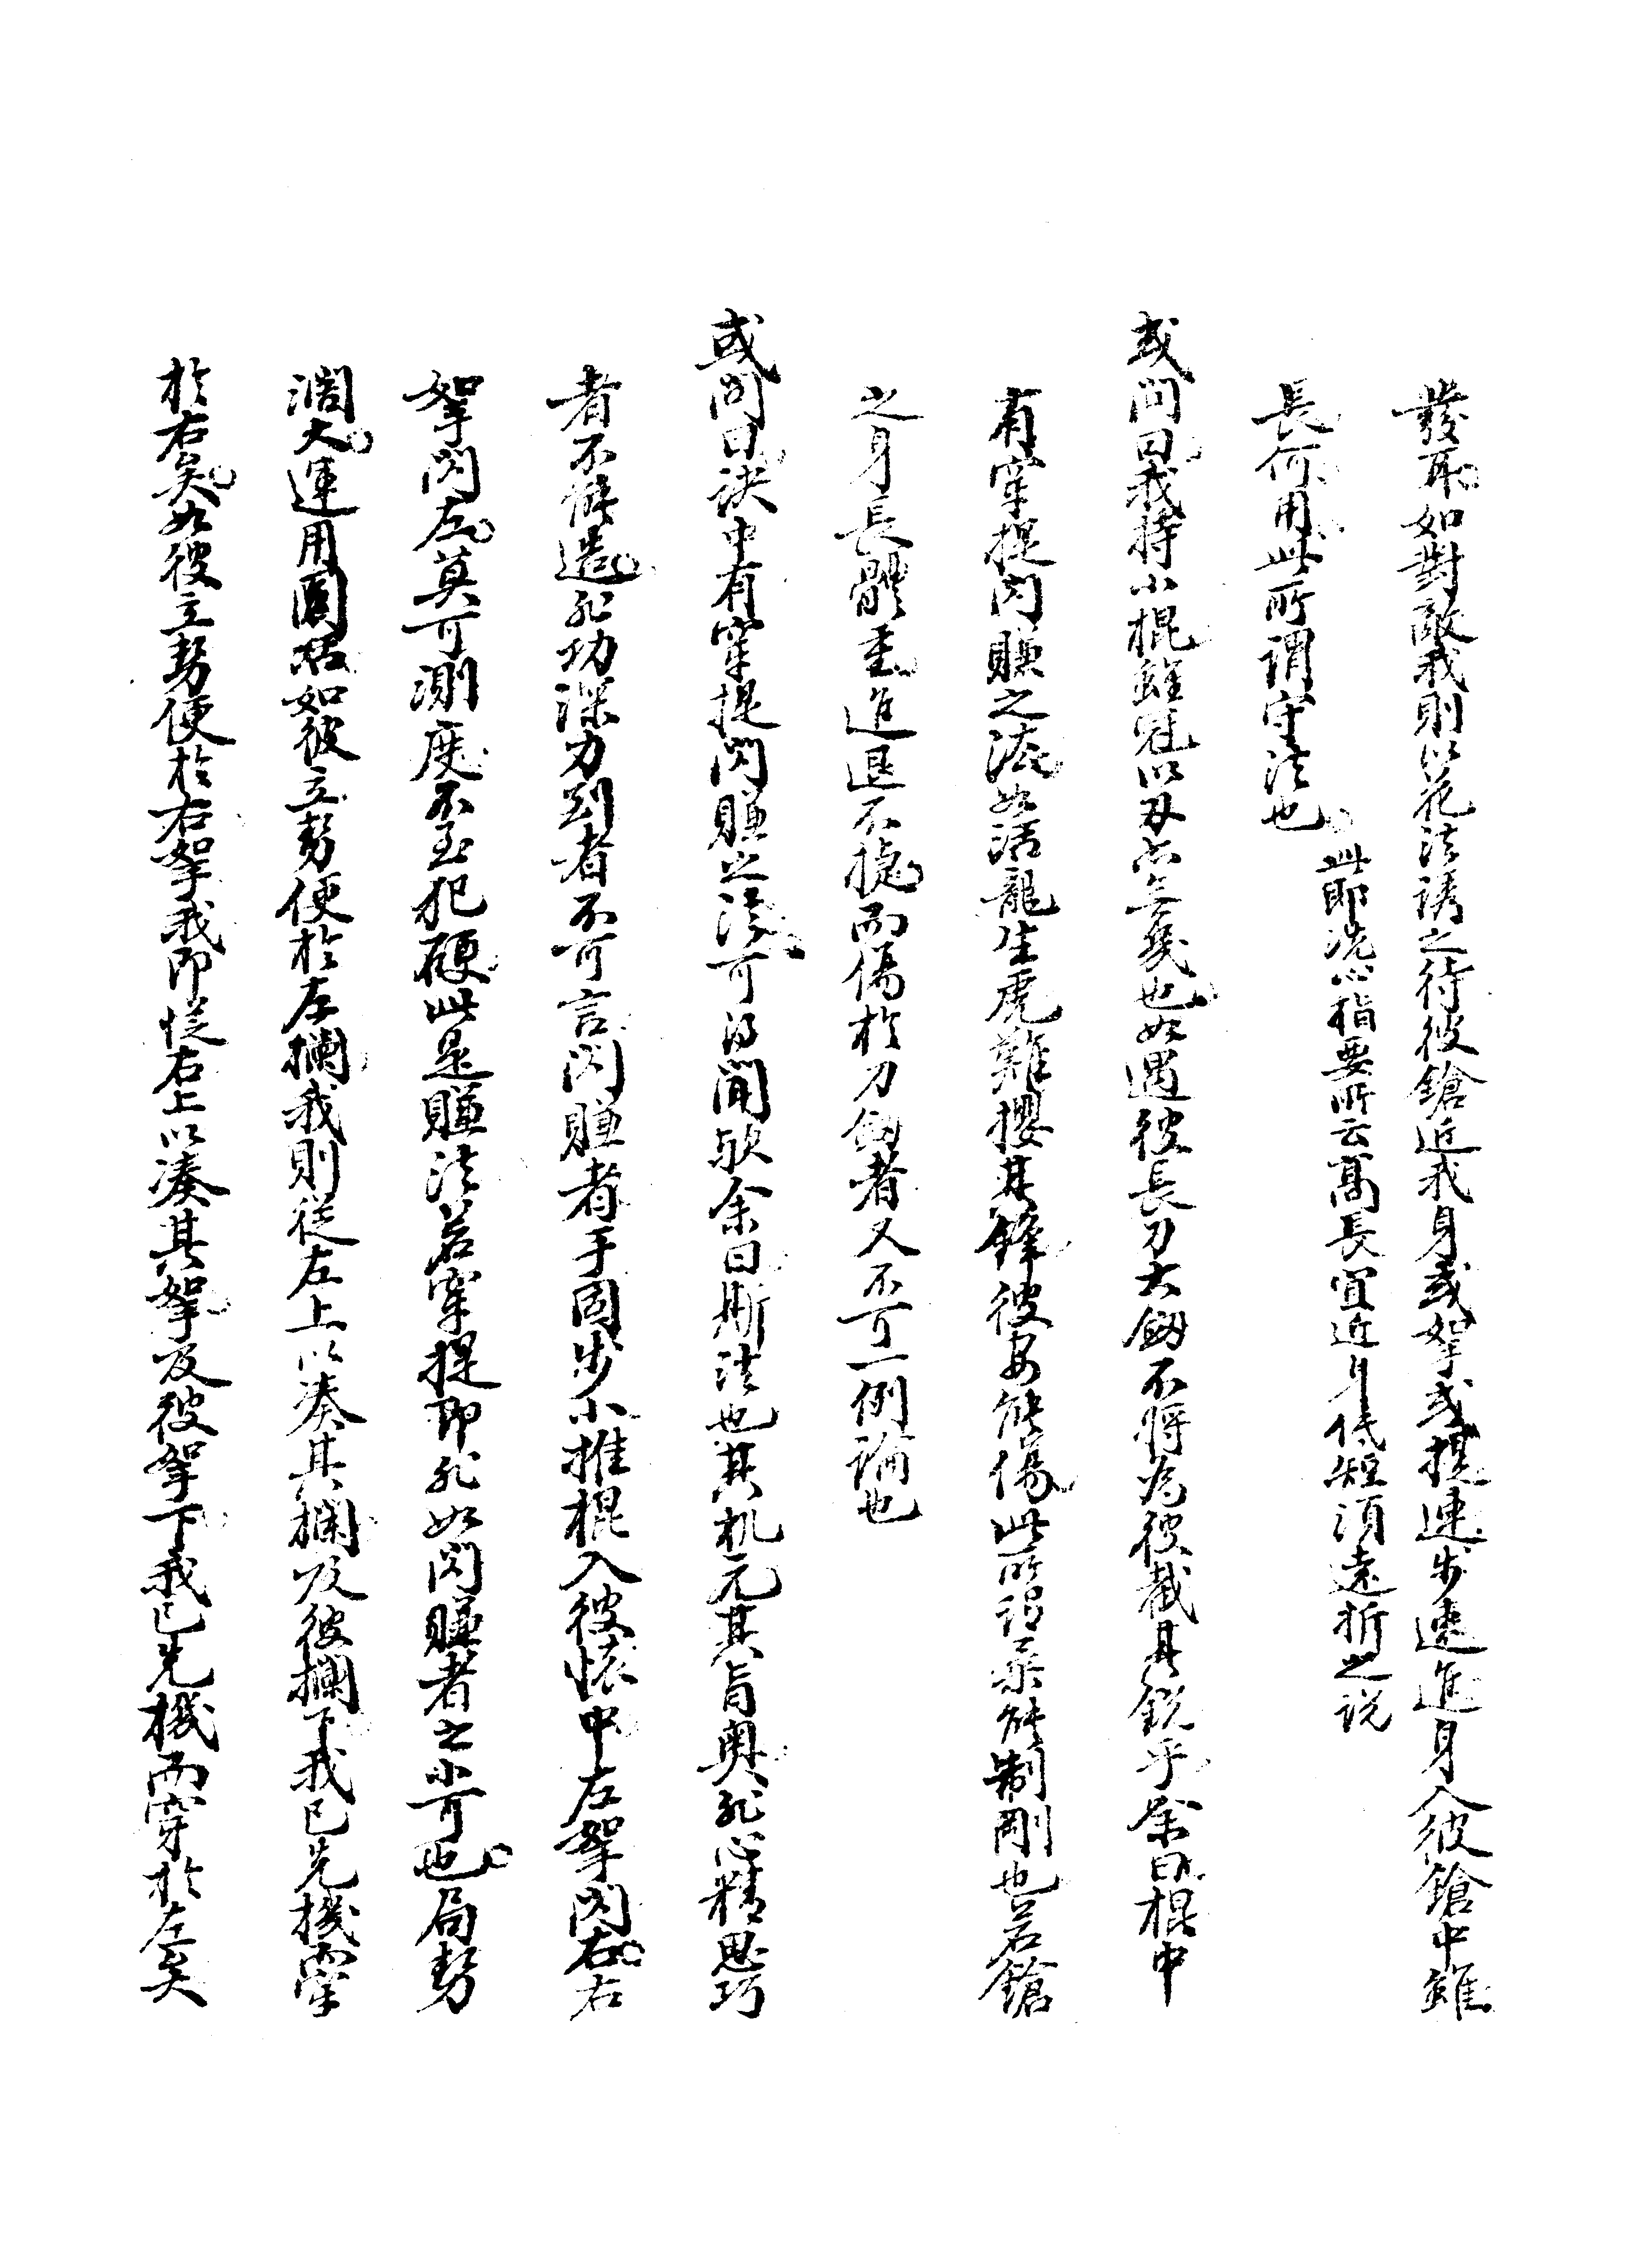 發耳如對敵我則以花法誘之待彼鎗近我身或拏或提速步速進身入彼鎗中雖
長何用此所謂守法也
此即洗心指要所云高長宜近身低短須遠折之説
或問曰我持小棍雖冠以刄亦無幾也如遇彼長刀大劔不將為彼截其鋭乎余曰棍中
有穿提閃賺之法如活龍生虎難攖其鋒彼安能傷此所謂柔能制剛也若鎗
之身長體重進退不捷而傷於刀劔者又不可一例論也
或問曰訣中有穿提閃賺之法可得聞歟余曰斯法也其机元其旨奥非心精思巧
者不能造非功深力到者不可言閃賺者手固步小推棍入彼懷中左拏閃右右
拏閃左莫可測度不至犯硬此是賺法若穿提即非如閃賺者之小可也局勢
濶大運用圓活如彼立勢便於左攔我則從左上以湊其攔及彼攔下我已先機穿
於右矣如彼立勢便於右拏我即從右上以湊其拏及彼拏下我已先機而穿於左矣